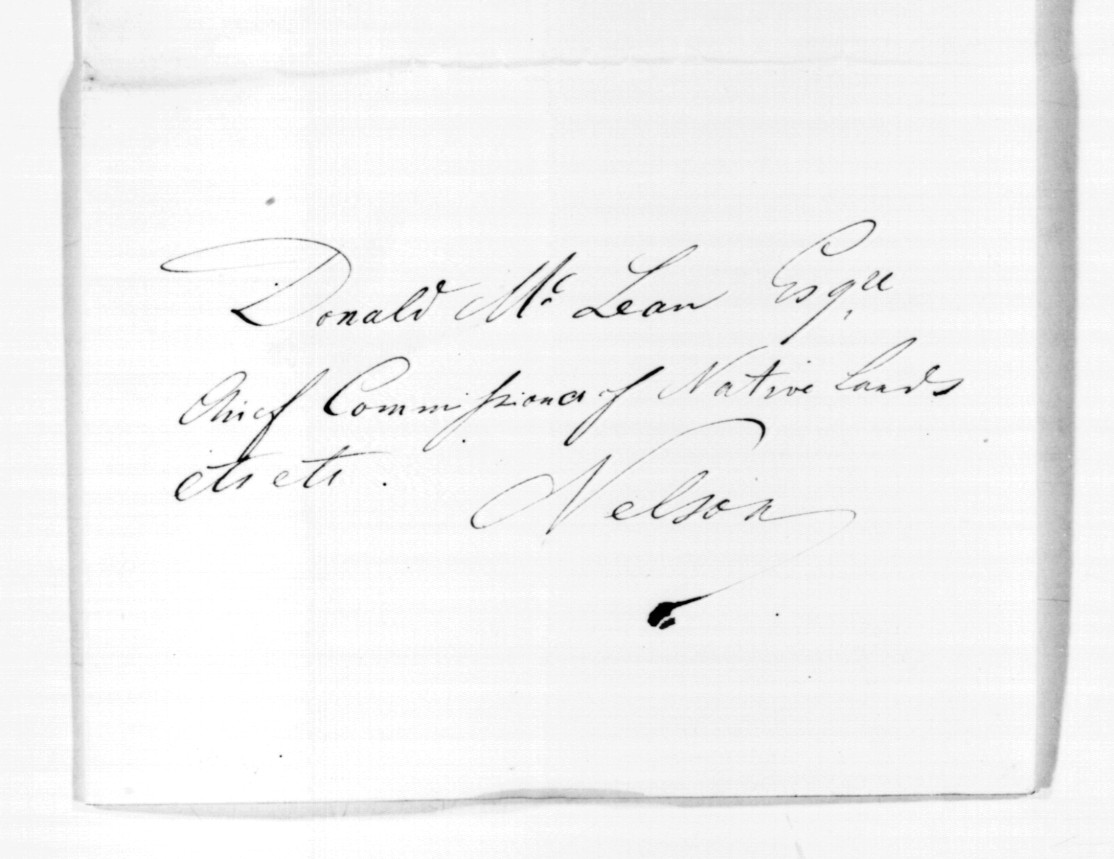 Donald McLean Esqre
Chief Commissioner of Native Lands
etc etc.
Nelson